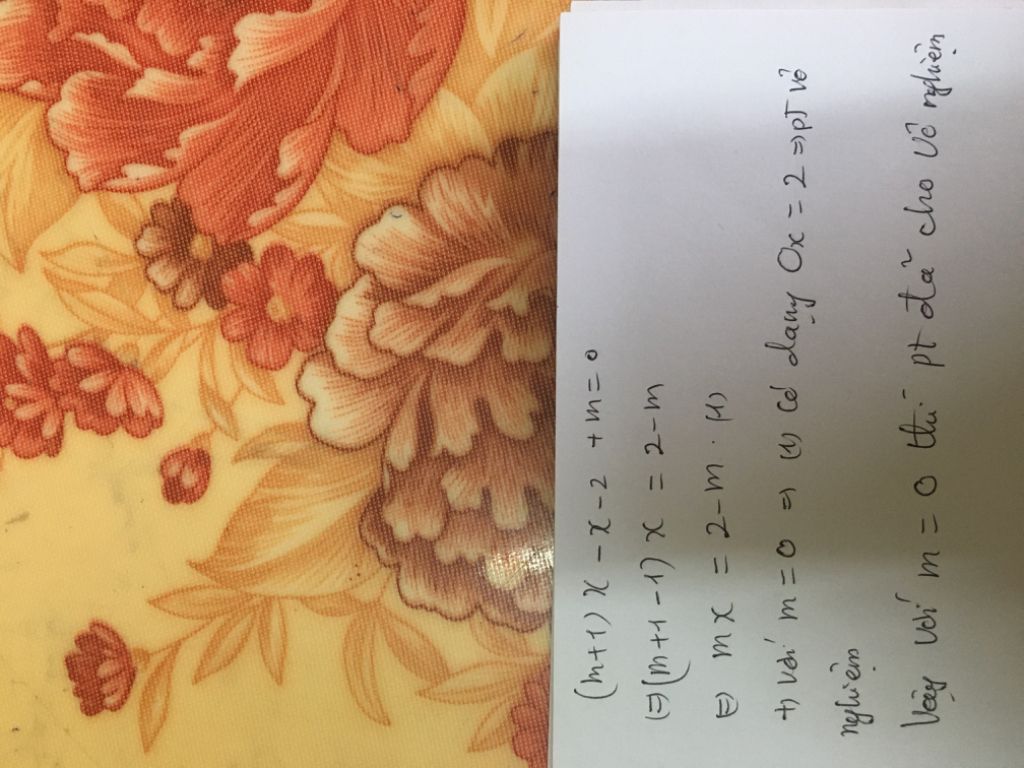 (m+1) x - x - 2 + m = 0
(=) (m+1-1) x = 2 - m
(=) mx = 2 - m. (1)
+) Với m = 0 => (1) có dạng 0x = 2 => pT vô
nghiệm
Vậy với m = 0 thì pt đã cho vô nghiệm